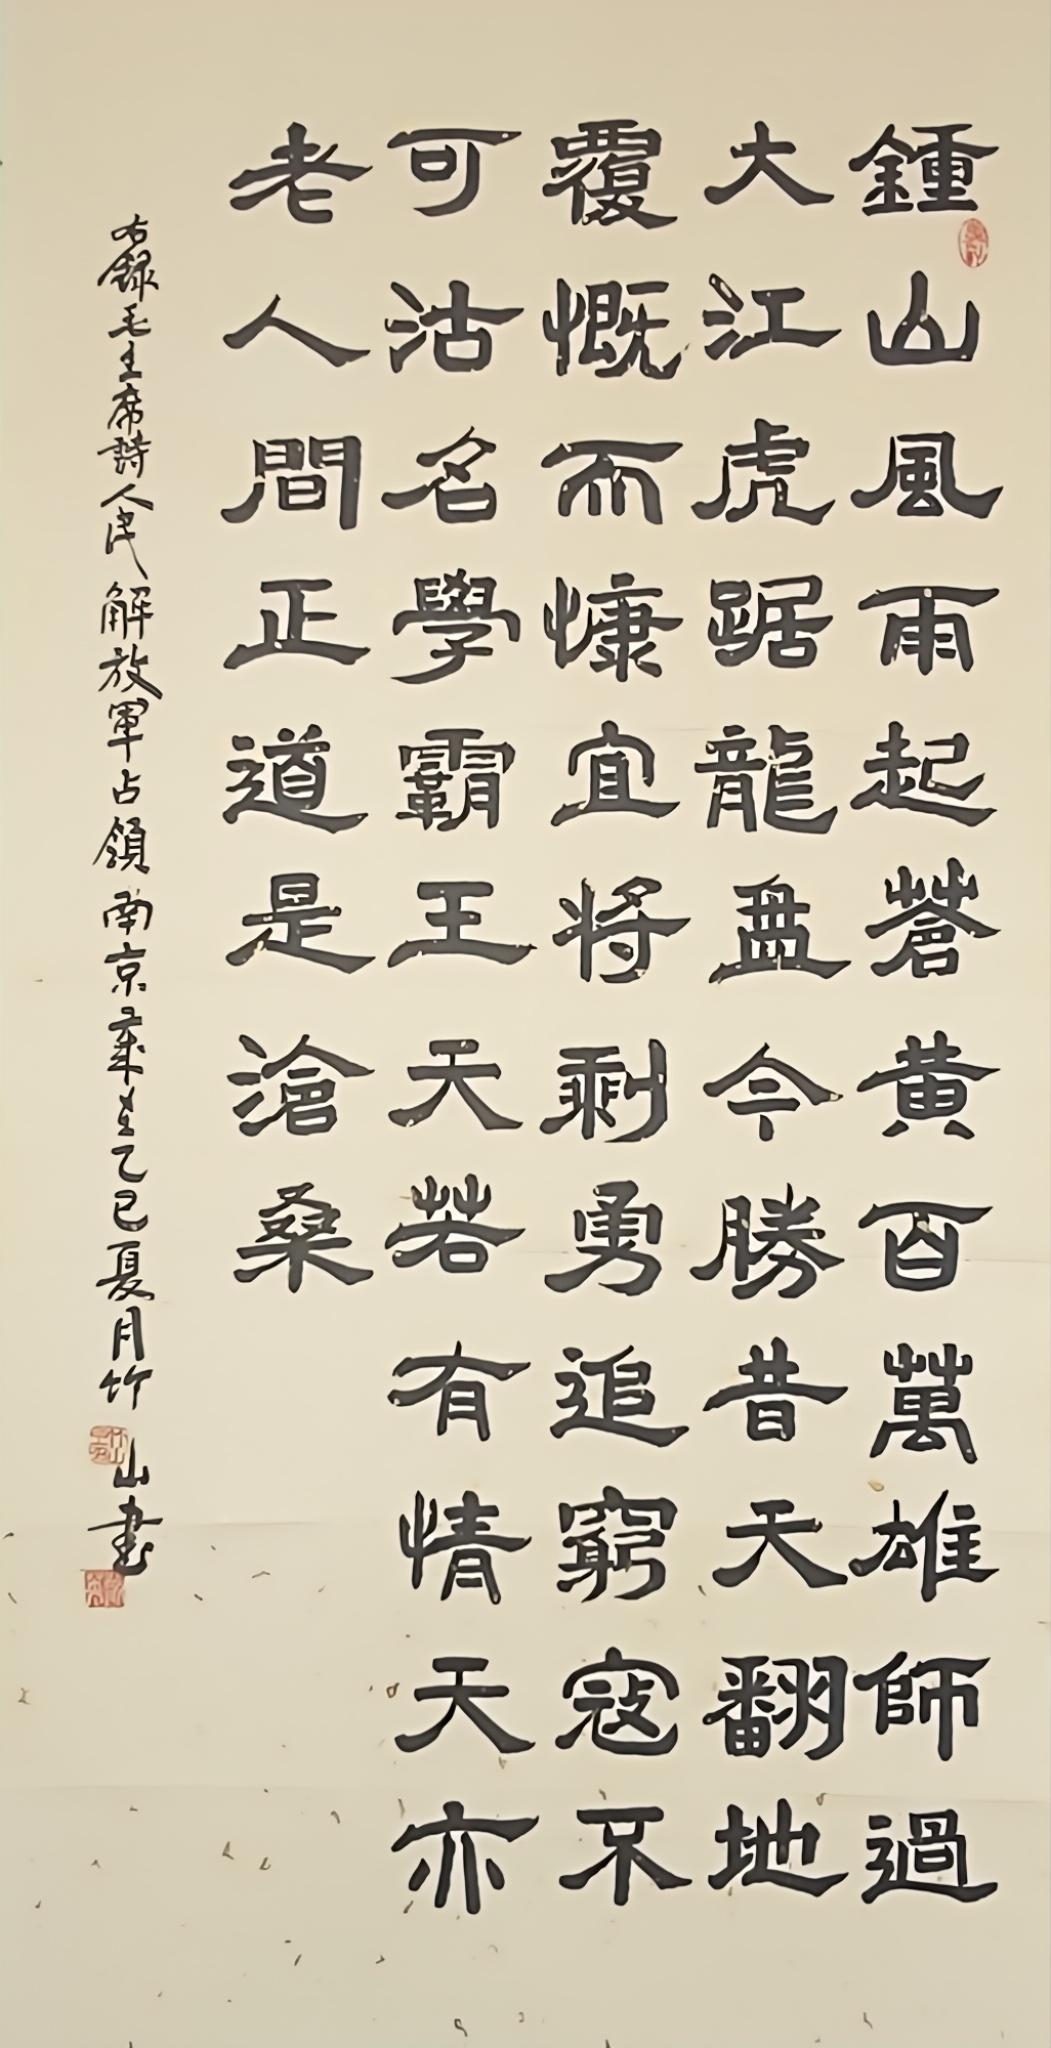 鍾山風雨起蒼黄百萬雄師過
大江虎踞龍盘今勝昔天翻地
覆慨而慷宜将剩勇追窮寇不
可沽名學霸王天若有情天亦
老人間正道是滄桑
右録毛主席詩人民解放軍占領南京歲在乙巳夏月竹山書